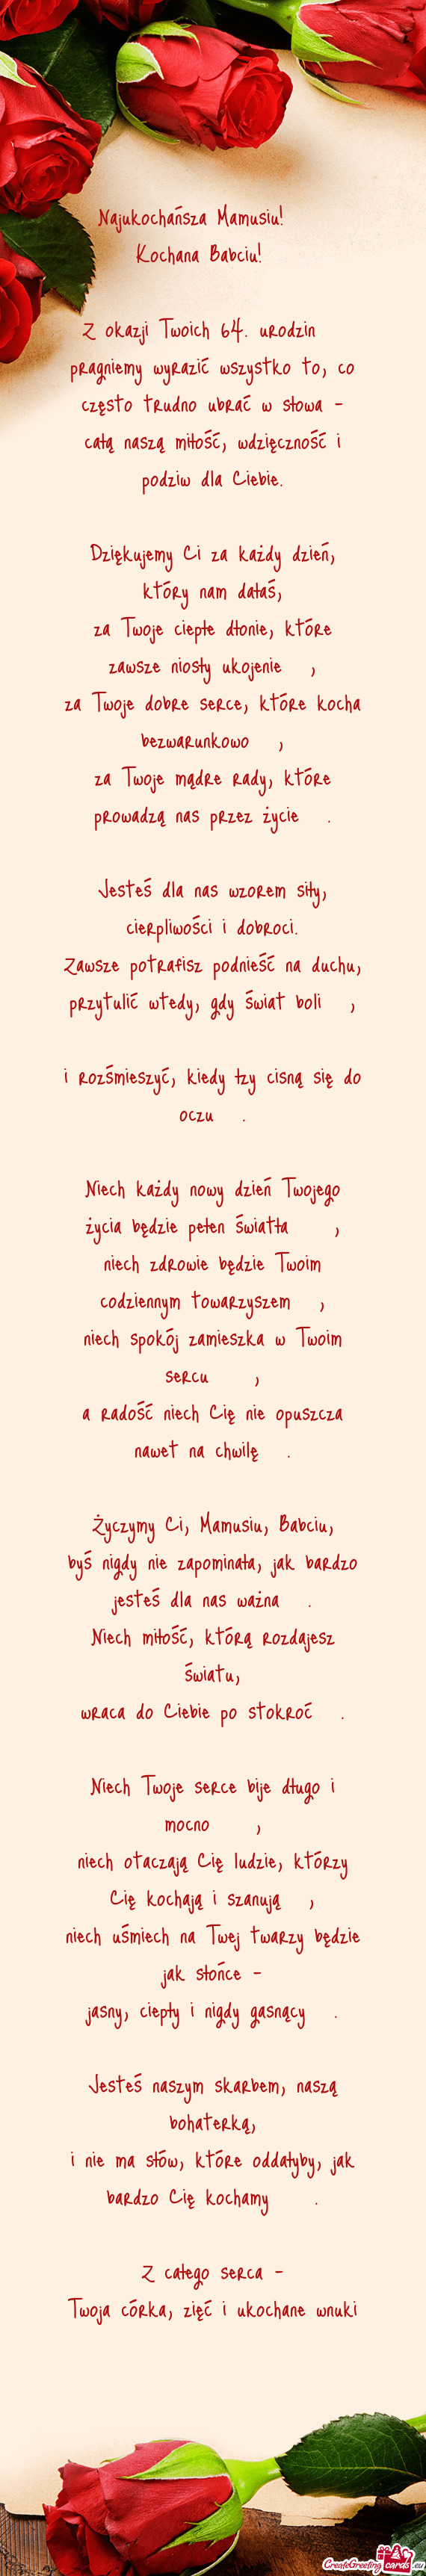 Najukochańsza Mamusiu!
Kochana Babciu!
Z okazji Twoich 64. urodzin
pragniemy wyrazić wszystko to, co
często trudno ubrać w słowa -
całą naszą miłość, wdzięczność i
podziw dla Ciebie.
Dziękujemy Ci za każdy dzień,
który nam dałaś,
za Twoje ciepłe dłonie, które
zawsze niosły ukojenie ,
za Twoje dobre serce, które kocha
bezwarunkowo ,
za Twoje mądre rady, które
prowadzą nas przez życie .
Jesteś dla nas wzorem siły,
cierpliwości i dobroci.
Zawsze potrafisz podnieść na duchu,
przytulić wtedy, gdy świat boli ,
i rozśmieszyć, kiedy łzy cisną się do
oczu .
Niech każdy nowy dzień Twojego
życia będzie pełen światła ,
niech zdrowie będzie Twoim
codziennym towarzyszem ,
niech spokój zamieszka w Twoim
sercu ,
a radość niech Cię nie opuszcza
nawet na chwilę .
Życzymy Ci, Mamusiu, Babciu,
byś nigdy nie zapominała, jak bardzo
jesteś dla nas ważna .
Niech miłość, którą rozdajesz
światu,
wraca do Ciebie po stokroć .
Niech Twoje serce bije długo i
mocno ,
niech otaczają Cię ludzie, którzy
Cię kochają i szanują ,
niech uśmiech na Twej twarzy będzie
jak słońce -
jasny, ciepły i nigdy gasnący .
Jesteś naszym skarbem, naszą
bohaterką,
i nie ma słów, które oddałyby, jak
bardzo Cię kochamy .
Z całego serca -
Twoja córka, zięć i ukochane wnuki
CreateGreetingcards.eu